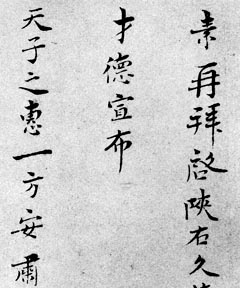 素再拜啓陝右久
才德宣布
天子之惠一方安肅